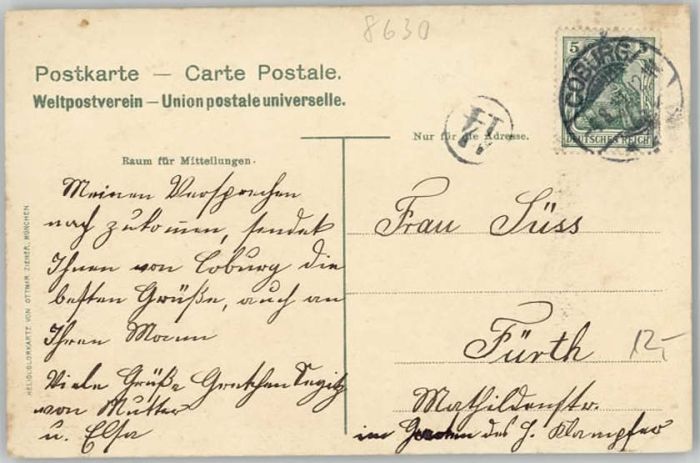 8630
Postkarte — Carte Postale.
Weltpostverein — Union postale universelle.
5
COBURG
DEUTSCHES REICH
Nur für die Adresse.
Raum für Mitteilungen.
Meinen Versprechen
nach zukommen, sendet
Ihnen von Coburg die
besten Grüße, auch an
Ihren Mann
Viele Grüße Gretchen Segitz
von Mutter
u. Elsa
Frau Süss
Fürth
12,-
Mathildenstr.
im des H. Klampfer
HELIOCOLORKARTE VON OTTMAR ZIEHER, MÜNCHEN.